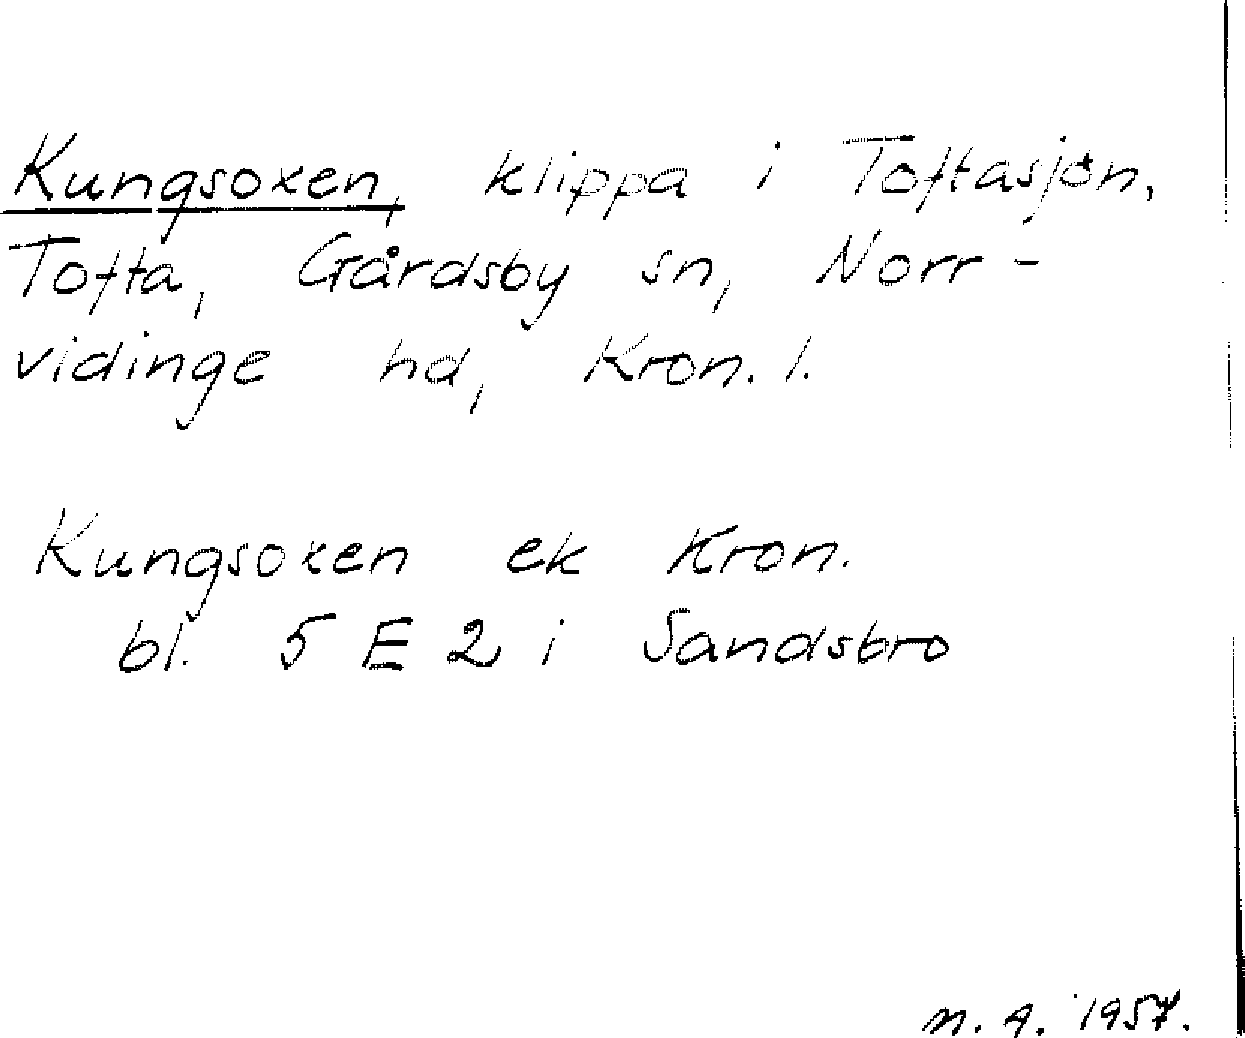 Kungsoxen, klippa i Toftasjön,
Tofta, Gårdsby sn, Norr-
vidinge hd, Kron. l.
Kungsoxen ek Kron.
bl. 5 E 2 i Sandsbro
n. A. 1957.